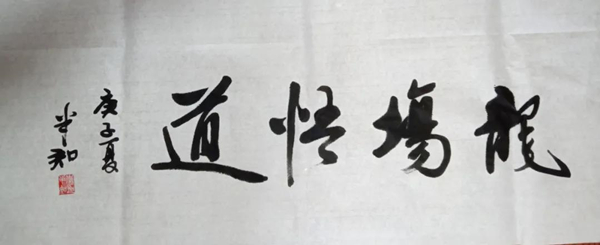 龍場悟道
庚子夏
半知